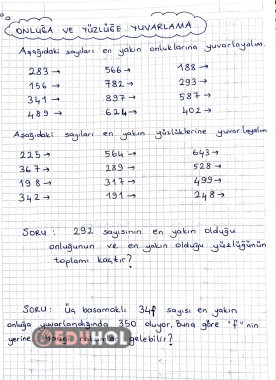 ONLUĞA VE YÜZLÜĞE YUVARLAMA
Aşağıdaki sayıları en yakın onluklarına yuvarlayalım.
283 → 566 → 188 →
156 → 782 → 293 →
341 → 897 → 587 →
489 → 624 → 402 →
Aşağıdaki sayıları en yakın yüzlüklerine yuvarlayalım
225 → 564 → 643 →
367 → 289 → 528 →
198 → 317 → 499 →
342 → 191 → 248 →
SORU : 292 sayısının en yakın olduğu
onluğunun ve en yakın olduğu yüzlüğünün
toplamı kaçtır?
SORU : Üç basamaklı 34f sayısı en yakın
onluğa yuvarlandığında 350 oluyor. Buna göre "f" nin
yerine gelebilir?